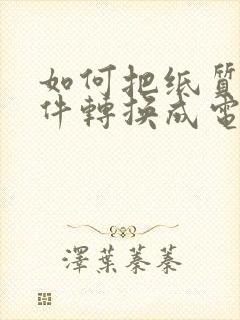 如何把纸質
件轉換成電
澤葉蓁蓁